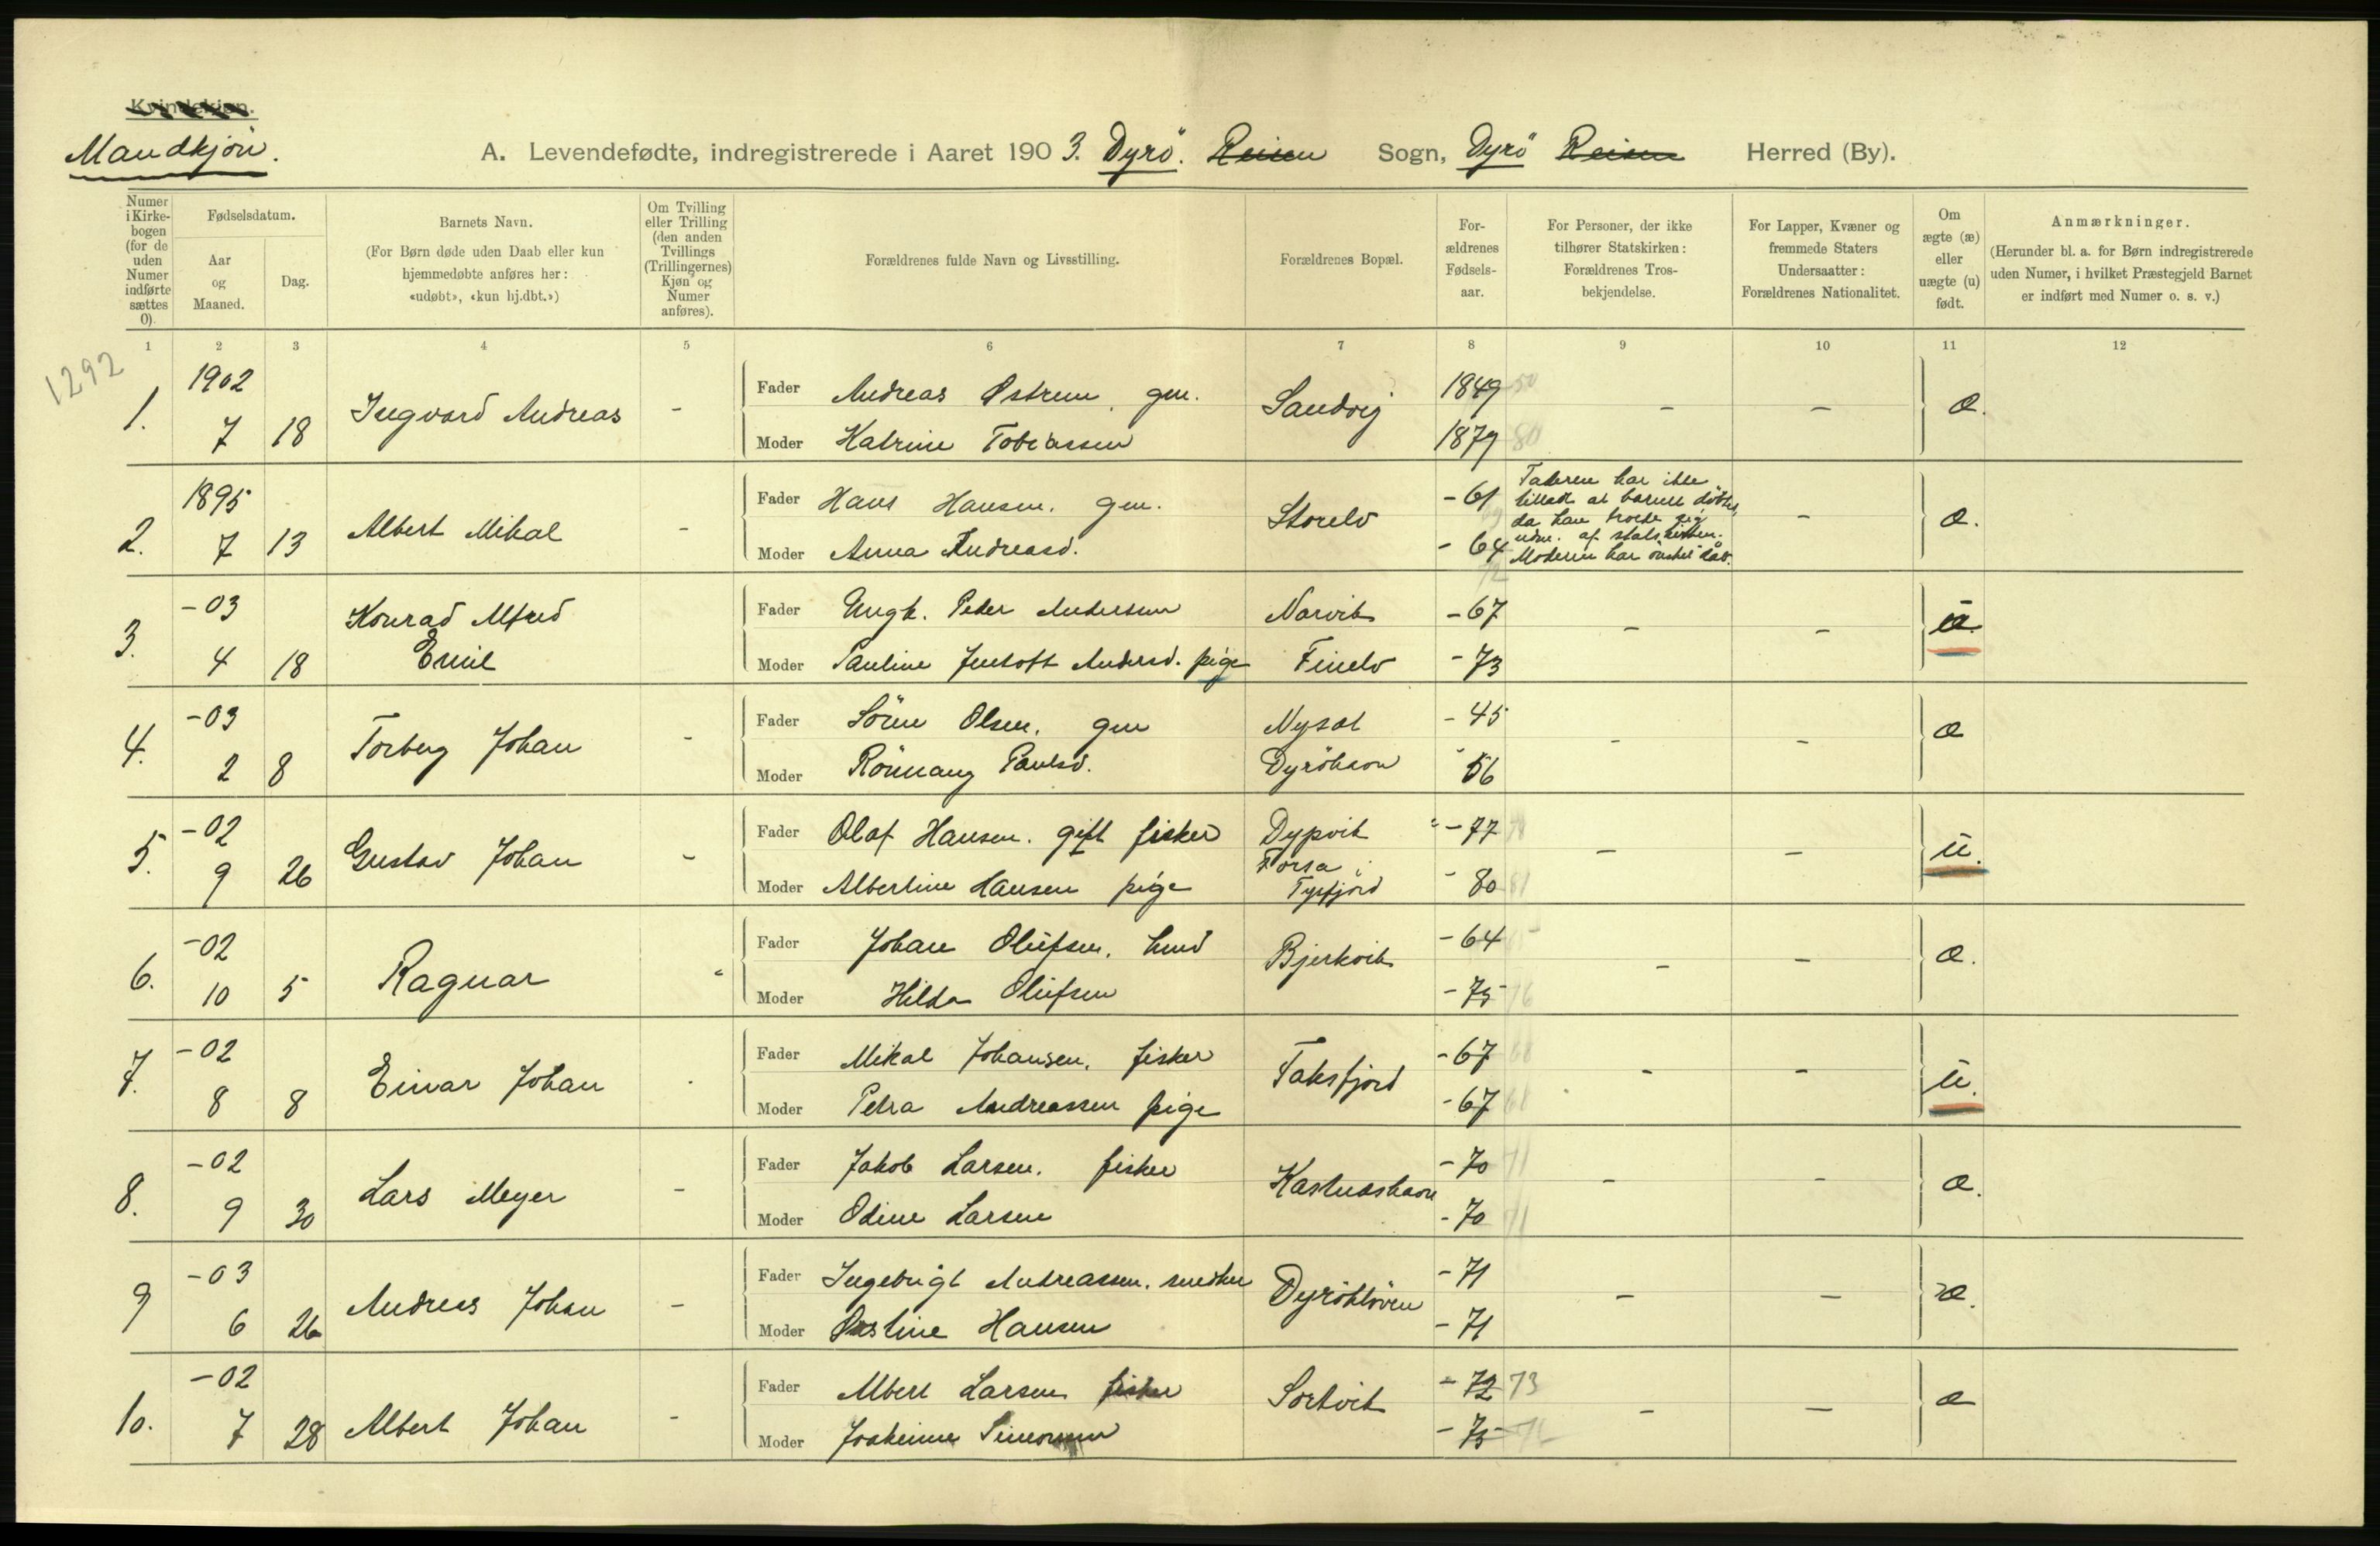 Kvindekjøn.
Mandkjön.
A. Levendefødte, indregistrerede i Aaret 1903. Dyrö. Reisen Sogn, Dyrö Reisen Herred (By).
Numer i Kirkebogen (for de uden Numer indførte sættes 0).
Fødselsdatum.
Aar og Maaned.
Dag.
Barnets Navn.
(For Børn døde uden Daab eller kun hjemmedøbte anføres her: «udøbt», «kun hj.dbt.»)
Om Tvilling eller Trilling (den anden Tvillings (Trillingernes) Kjøn og Numer anføres).
Forældrenes fulde Navn og Livsstilling.
Forældrenes Bopæl.
For-ældrenes Fødsels-aar.
For Personer, der ikke tilhører Statskirken: Forældrenes Tros-bekjendelse.
For Lapper, Kvæner og fremmede Staters Undersaatter: Forældrenes Nationalitet.
Om ægte (æ) eller uægte (u) født.
Anmærkninger.
(Herunder bl. a. for Børn indregistrerede uden Numer, i hvilket Præstegjeld Barnet er indført med Numer o. s. v.)
1 2 3 4 5 6 7 8 9 10 11 12
1292
1. 1902 7 18 Ingvard Andreas -
Fader Andreas Østrem. gm. Sandvig 1849 50 - - æ.
Moder Katrine Tobiassen 1879 80
2. 1895 7 13 Albert Mikal -
Fader Hans Hansen. gm. Storelv - 61
Moder Anna Andreasd. - 64
Faderen har ikke
tilladt at barnet döbtes,
da han troede sig
udm. af statskirken.
Moderen har önsket daab.
- æ.
3. -03 4 18 Konrad Alfred
Emil
Fader Ungk. Peter Andersen Narvik - 67 - - u
Moder Pauline Jentoft Andersd. pige Finelv - 73
4. -03 2 8 Torberg Johan -
Fader Sören Olsen. gm Nysat - 45 - - æ
Moder Rönnaug Paulsd. Dyröhavn - 56
5. -02 9 26 Gustav Johan -
Fader Olaf Hansen. gift fisker Dypvik - 77 78 - - u.
Moder Albertine Hansen pige Forsa i
Tysfjord - 80 81
6. -02 10 5 Ragnar
Fader Johan Olufsen. Bjerkvik - 64 65 - - æ.
Moder Hilda Olufsen - 75 76
7. -02 8 8 Einar Johan -
Fader Mikal Johansen. fisker Faksfjord - 67 68 - - u.
Moder Petra Andreassen pige - 67 68
8. -02 9 30 Lars Meyer -
Fader Jakob Larsen. fisker Kastneshavn - 70 71 - - æ.
Moder Odine Larsen - 70 71
9 -03 6 26 Andreas Johan -
Fader Ingebrigt Andreassen. snedker Dyröklöven - 71 - - æ.
Moder Hansen - 71
10. -02 7 28 Albert Johan -
Fader Albert Larsen fisker Sortvik - 72 73 - - æ
Moder Joakimine Simonsen - 75